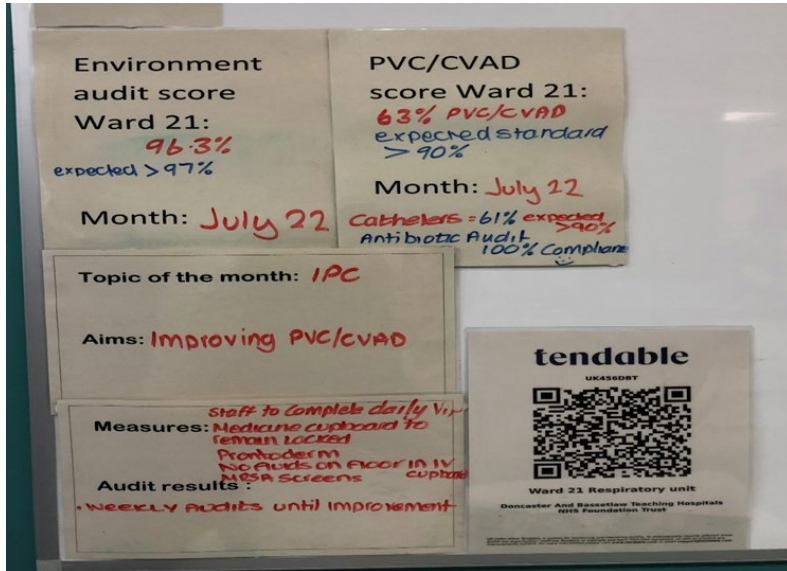 Environment
audit score
Ward 21:
96.3%
expected >97%
Month: July 22
PVC/CVAD
score Ward 21:
63% PVC/CVAD
expected standard
>90%
Month: July 22
Catheters = 61% expected
>90%
Antibiotic Audit
100% Compliane
Topic of the month: IPC
Aims: Improving PVC/CVAD
Staff to complete daily
Measures: Medicine cupboard to
remain locked
Prontoderm
No fluids on floor in IV
cupboard
MRSA Screens
Audit results :
• Weekly Audits until improvement
tendable
UK456DBT
Ward 21 Respiratory unit
Doncaster And Bassetlaw Teaching Hospitals
NHS Foundation Trust